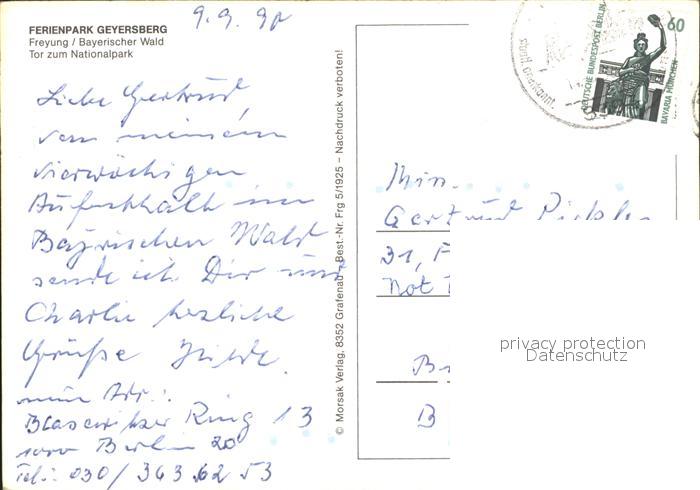 FERIENPARK GEYERSBERG
Freyung / Bayerischer Wald
Tor zum Nationalpark
9.9.90
Liebe Gertrud,
von meinem
vierwöchigen
Aufenthalt im
Bayrischen Wald
sende ich Dir und
Charlie herzliche
Grüße Hilde.
Blaswitzer Ring 13
1000 Berlin 20
Tel.: 030/ 363 62 53
© Morsak Verlag, 8352 Grafenau – Best.-Nr. Frg 5/1925 – Nachdruck verboten!
60
DEUTSCHE BUNDESPOST BERLIN
BAVARIA MÜNCHEN
Gertrud
31, F
Not
B
privacy protection
Datenschutz